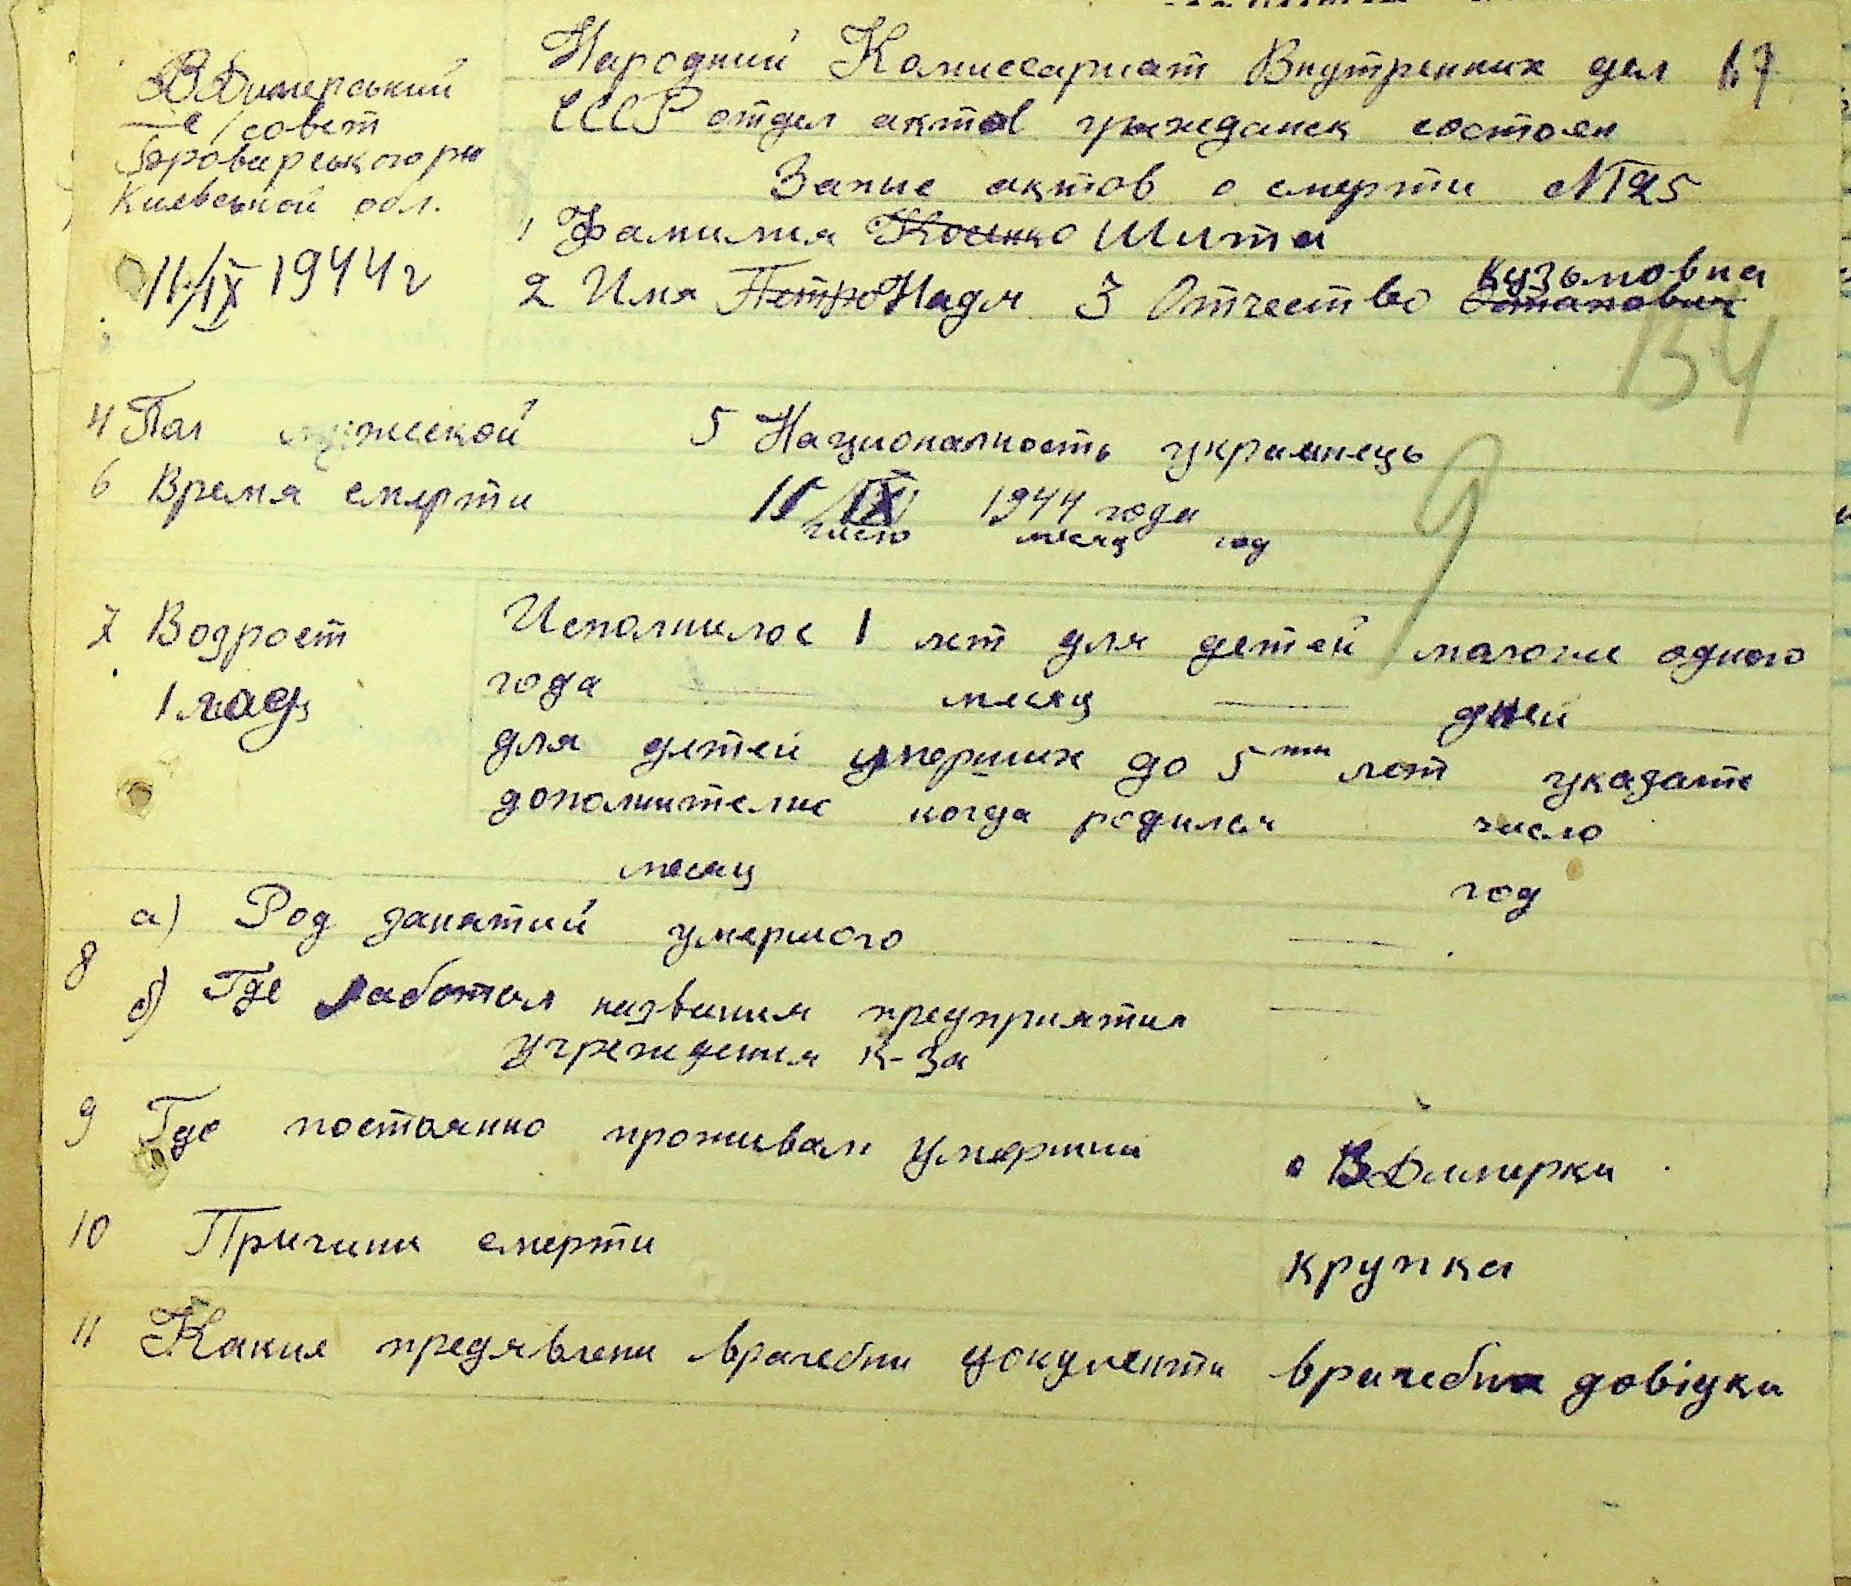 В Димерський
с/совет
Броварського р-н
Киевськой обл.
11/IX 1944 г
Народний Комиссариат Внутренних дел 17
СССР отдел актов гражданск состоян
Запис актов о смерти №25
1 Фамилия Косенко Шита
2 Имя Петро Надя 3 Отчество Кузьмовна Остапович
154
4 Пол мужской 5 Националность украинець
6 Время смерти 11/IX 1944 года
число месяц год
9
7 Возрост Исполнилос 1 лет для детей моложе одного
1 год года — месяц — дней
для детей умерших до 5ти лет указате
дополнителнс когда родился число
месяц год
8 а) Род занятий умершого —
б) Где работал названия предприятия —
учреждения к-за
9 Где постоянно проживал умерший с В Димерки
10 Причини смерти крупка
11 Какие предявлени врачебни документи врачебна довідка